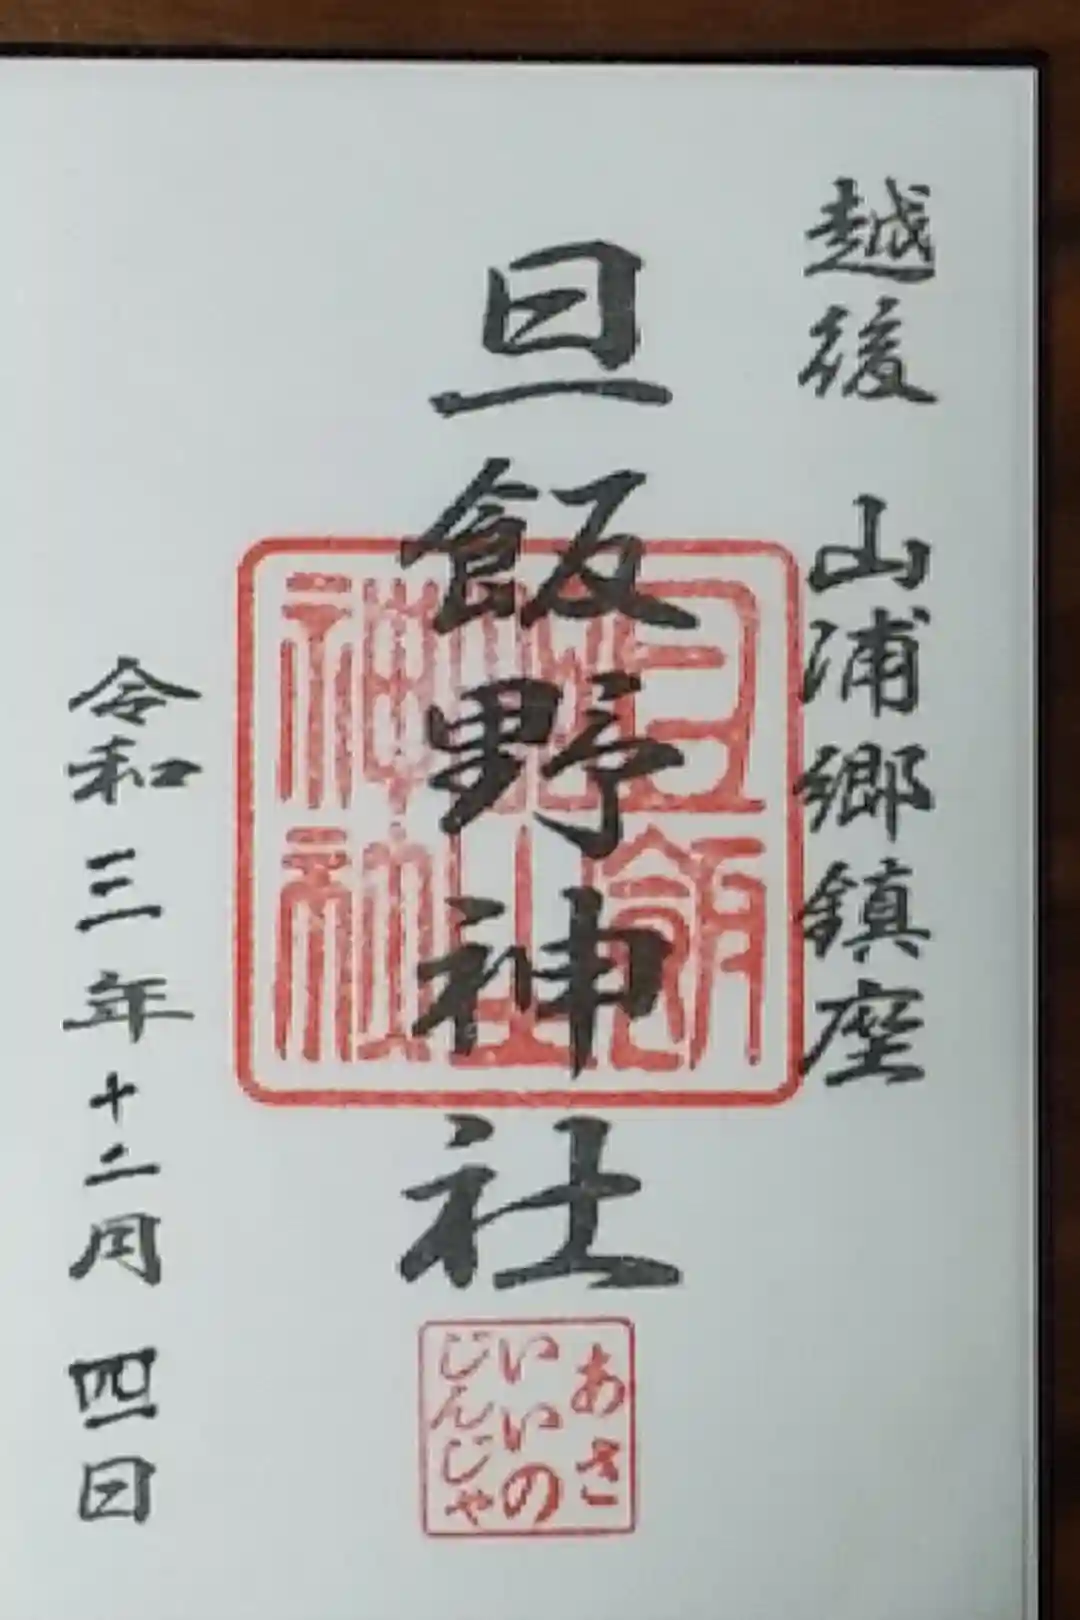 越後 山浦郷鎮座
旦飯野神社
旦飯
神社
あさ
いいの
じんじゃ
令和三年十二月四日